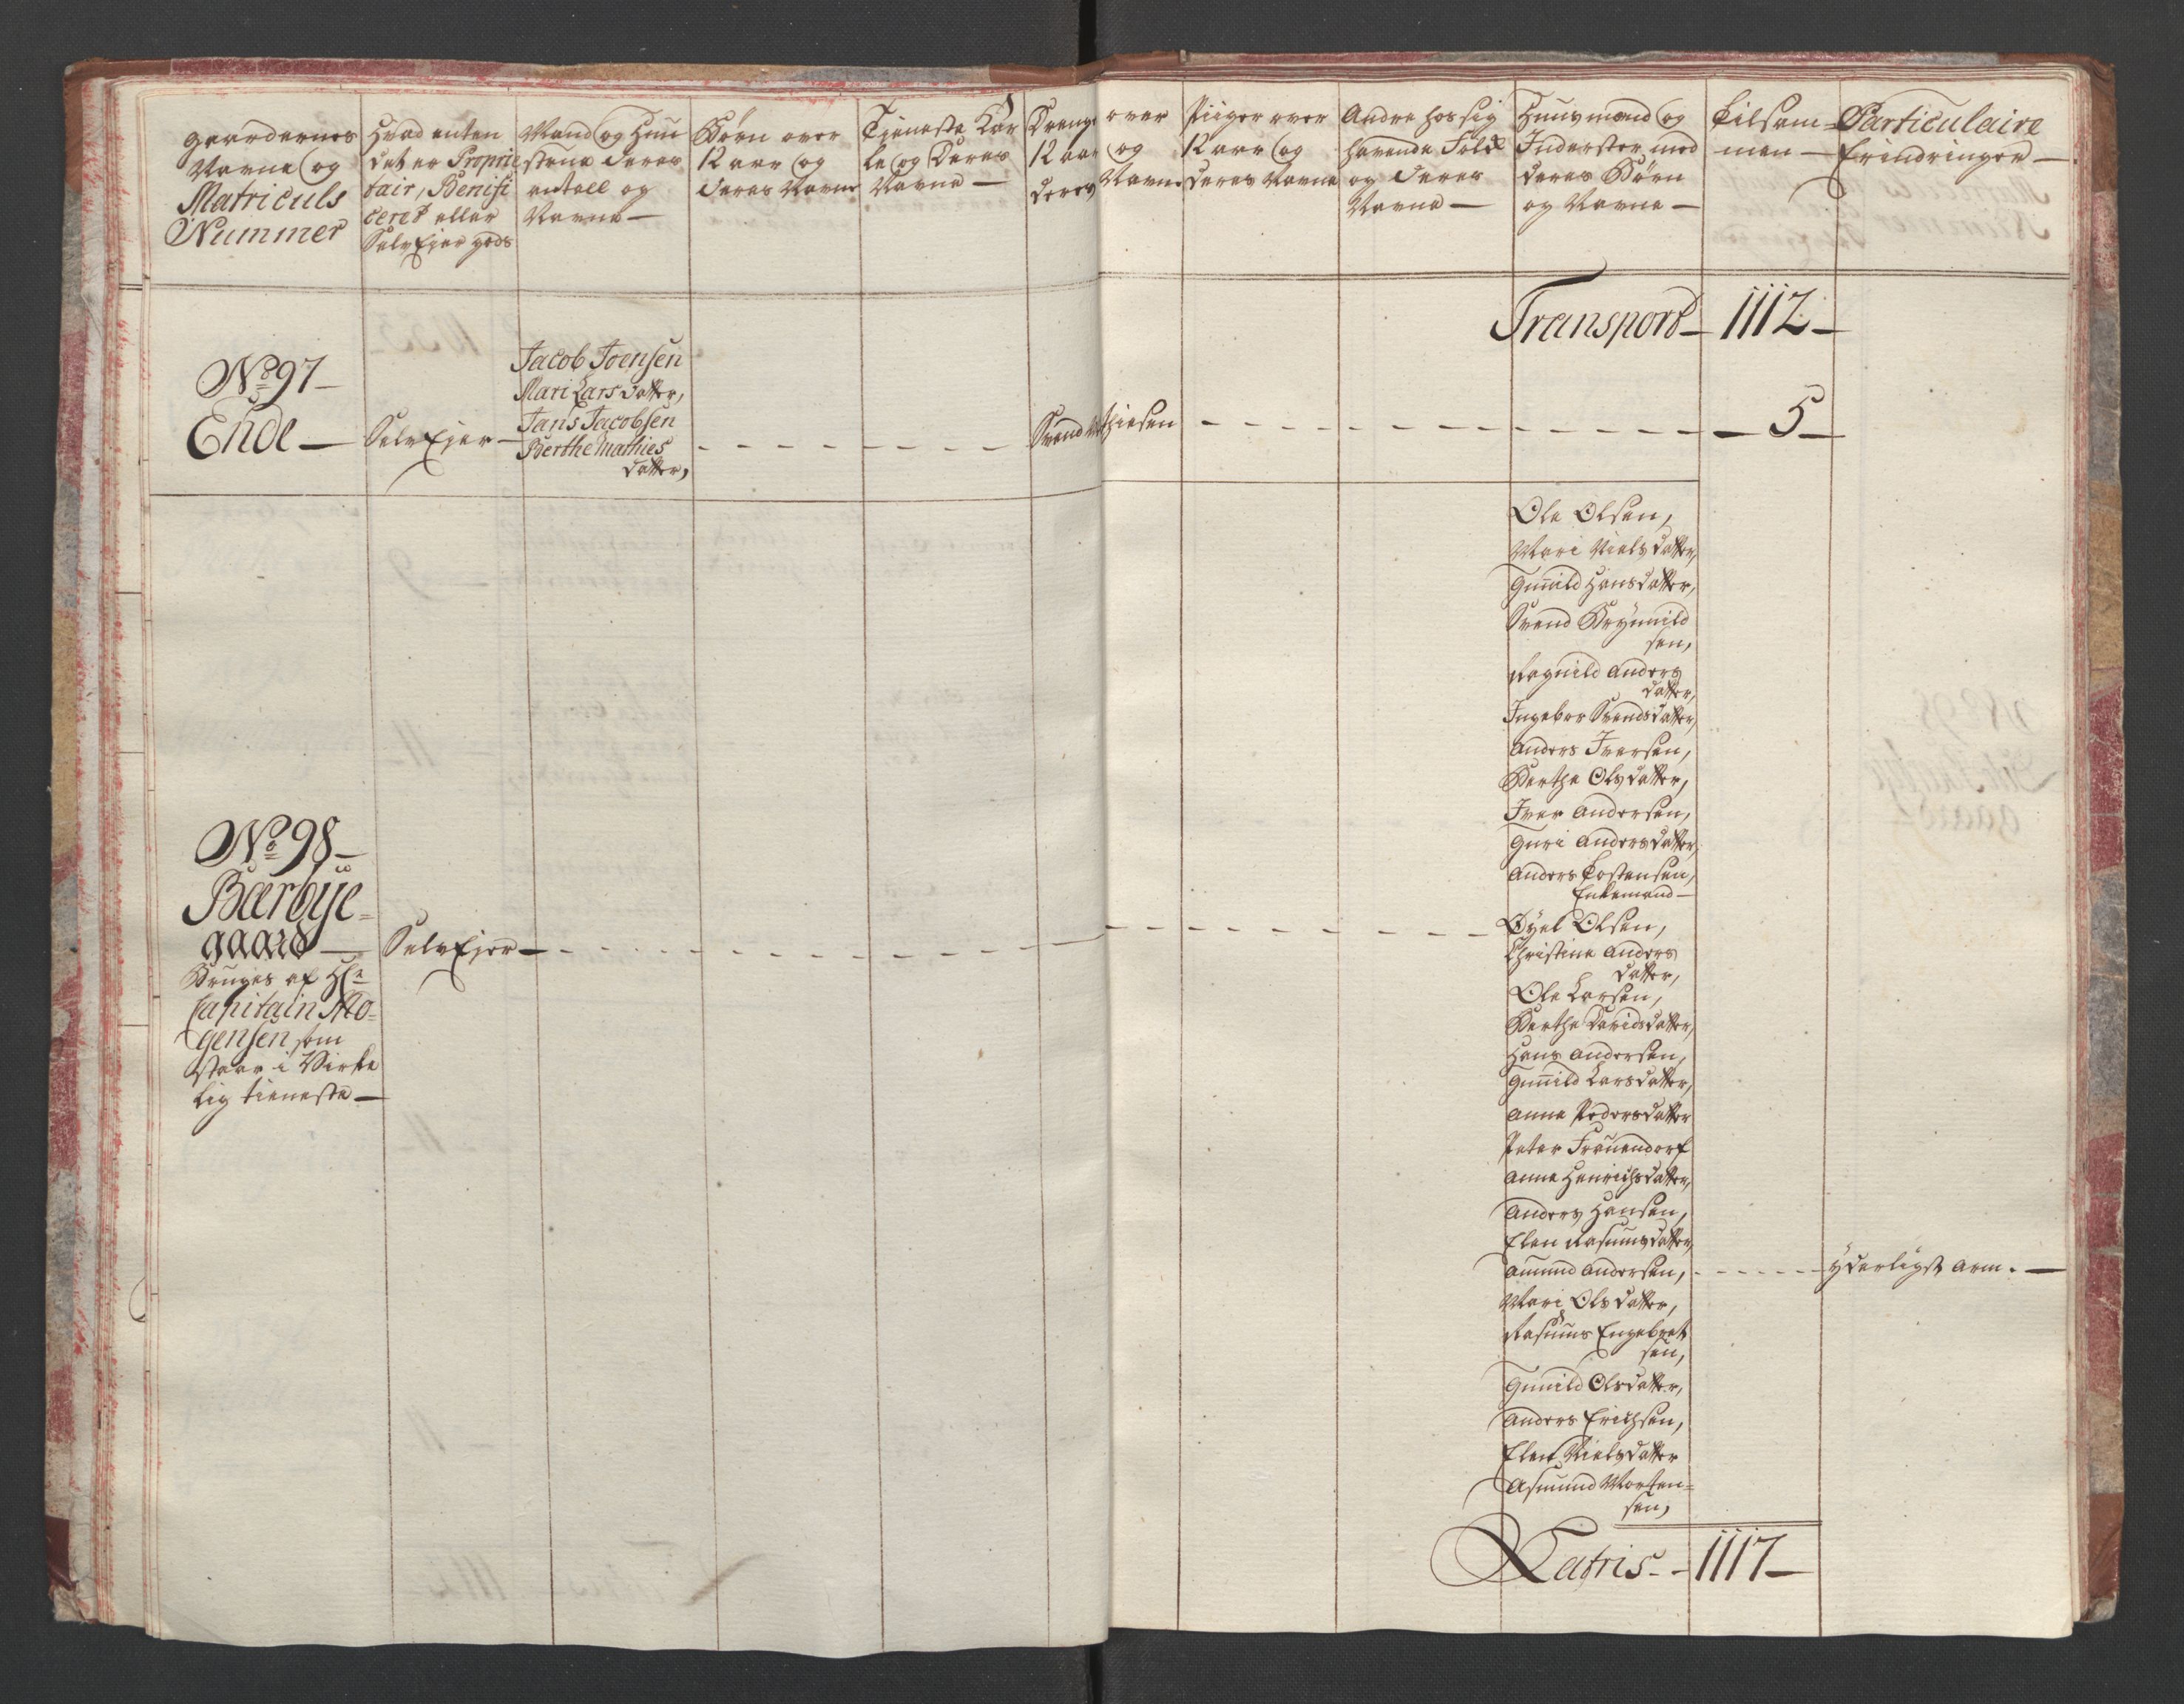 gaardernes
Navne og
Matriculs
Nummer
Hvad enten
det er Proprie
tair, Benifi
ceret eller
SelvEjer gods
Mand og Huu
strue deres
antall og
Navne —
Børn over
12 aar og
deres Navne
Tjeneste Kar
le og Deres
Navne —
Drenge over
12 aar og
deres Navne
Piiger over
12 aar og
deres Navne
Andre hos sig
havende Folk
og deres
Navne —
Huusmænd og
Inderster med
deres Børn
og Navne —
Tilsam=
men —
Particulaire
Erindringer —
Transport — 1112 —
No 97 —
Ende —
SelvEjer —
Jacob Joensen
Mari Larsdatter,
Jans Jacobsen
Berthe Mathies
datter,
Svend Mathiesen
— 5 —
No 98 —
Bærbÿe=
gaard —
Bruges af Hr
Capitain Mo=
gensen som
staar i Virke
lig tieneste —
SelvEjer —
Ole Olsen,
Mari Nielsdatter,
Gunild Hansdatter,
Svend Brynnild
sen,
Ragnild Anders
datter,
Ingebor Svendsdatter,
Anders Iversen,
Berthe Olsdatter,
Iver Andersen,
Guri Andersdatter,
Anders Tostensen,
Enkemand —
Olsen,
Christine Anders
datter,
Ole Larsen,
Berthe Davidsdatter,
Hans Andersen,
Gunild Larsdatter,
Anne Pedersdatter
Peter Frauendorf
Anne Henrichsdatter,
Anders Hansen,
Elen Rasmusdatter,
Amund Andersen,
yderligst arm. —
Mari Olsdatter,
Rasmus Engebret
sen,
Gunild Olsdatter,
Anders Erichsen,
Elen Nielsdatter
Asmund Morten=
sen,
Latris — 1117 —